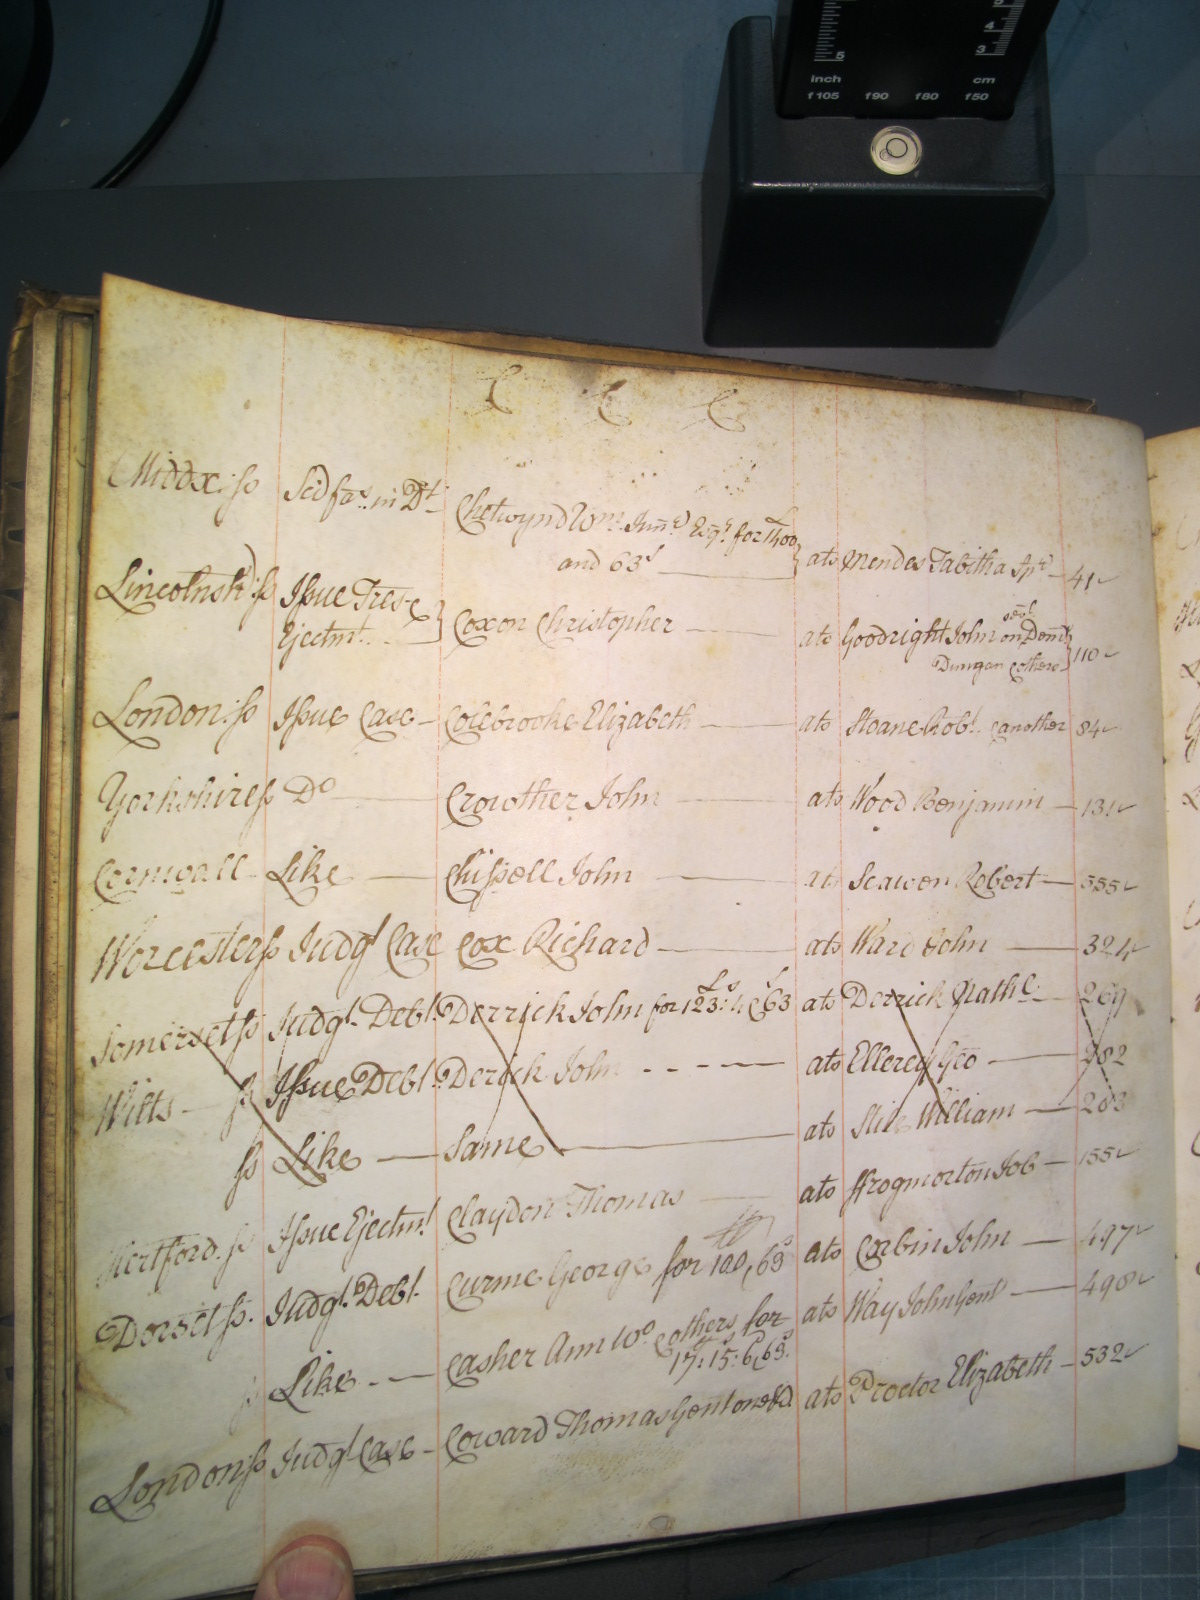 5 4 3
inch cm
f105 f90 f80 f50
C C C
Middx: ss Scī fas. in Dt. Chetwynd Wm. Junr. Esqr. for £1400
and 63s ats Mendes Tabitha Spr. 41
Lincolnsh: ss Issue Tres & Coxon Christopher ats Goodright John on Demē
Ejectmt. Dungan & others 110
London: ss Issue Case Colebrooke Elizabeth ats Sloane Robt. & another 84
Yorkshire ss Do Crowther John ats Wood Benjamin 131
Cornwall Like Chissell John ats Scawen Robert 555
Worcester ss Judgt Case Cox Richard ats Ward John 324
Somerset ss Judgt. Debt. Derrick John for £123: 4s & 63 ats Derrick Nathl. 269
Wilts ss Issue Debt. Derick John ats Ellery Geo 282
ss Like Same ats William 283
Hertford. ss Issue Ejectmt Claydon Thomas ats ffrogmorton Job 155
Dorset ss. Judgt. Debt. Curme George for 100 & 63s ats Corbin John 497
Like Casher Ann Wo & others for ats Way John Gent 498
17: 15: 6 & 63s.
London ss Judgt Case Coward Thomas Gent one &c ats Proctor Elizabeth 532